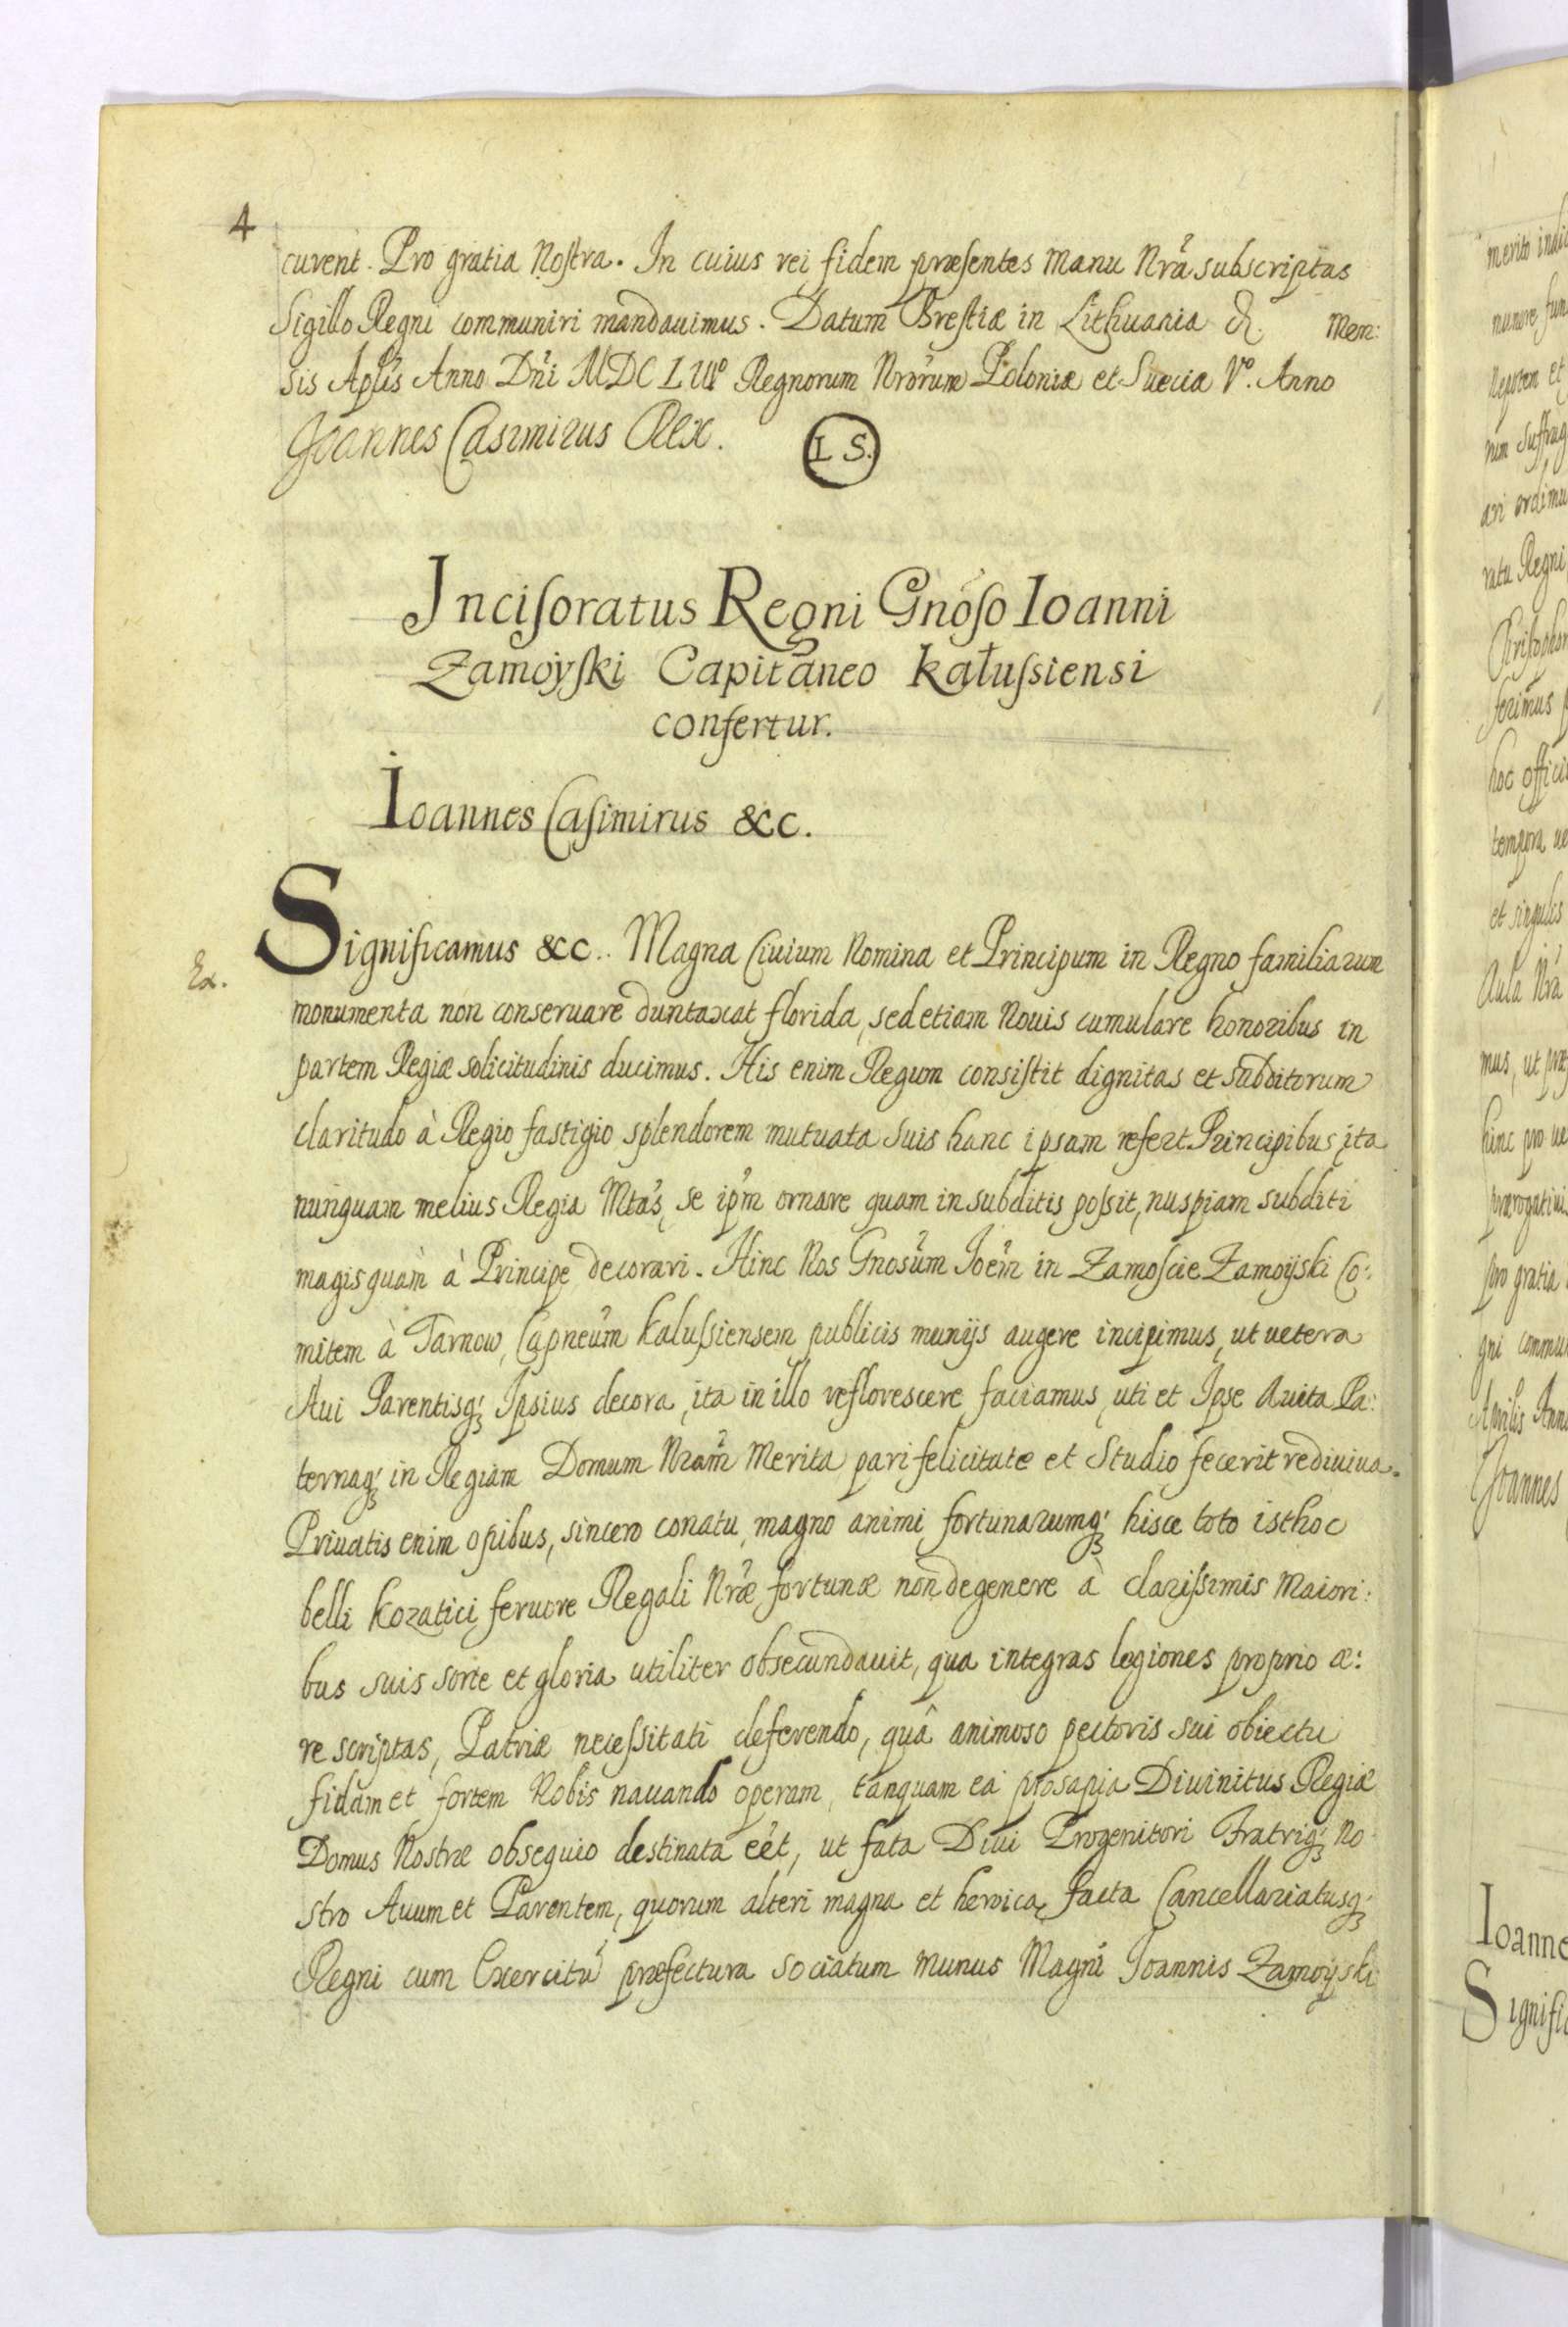 4
curent. Pro gratia Nostra. In cuius rei fidem præsentes Manu Nrã subscriptas
Sigillo Regni communiri mandauimus. Datum Brestiæ in Lithuania d. Men:
sis Aplis Anno Dni MDCLIIIº Regnorum Nrorum Poloniæ et Sueciæ Vº. Anno
Joannes Casimirus Rex. L S.
Incisoratus Regni Gnoso Ioanni
Zamoyski Capitaneo Kałussiensi
confertur.
Ioannes Casimirus &c.
Ex.
Significamus &c.. Magna Ciuium Nomina et Principum in Regno familiarum
monumenta non conseruare duntaxat florida, sed etiam Nouis cumulare honoribus in
partem Regiæ solicitudinis ducimus. His enim Regum consistit dignitas et subditorum
claritudo à Regio fastigio splendorem mutuata suis hanc ipsam refert Principibus, ita
nunquam melius Regia Mtas, se ipm ornare quam in subditis possit, nuspiam subditi
magis quàm à Principe decorari. Hinc Nos Gnosum Joem in Zamoscie Zamoyski Co:
mitem à Tarnow, Capneum Kalussiensem publicis munijs augere incipimus, ut uetera
Aui Parentisq; Ipsius decora, ita in illo reflorescere faciamus, uti et Ipse Auita Pa:
ternaq; in Regiam Domum Nram Merita pari felicitate et Studio fecerit rediuiua.
Priuatis enim opibus, sincero conatu, magno animi fortunarumq; hisce toto isthoc
belli Kozatici feruore Regali Nræ fortunæ non degenere à clarissimis Maiori:
bus suis sorte et gloria utiliter obsecundauit, qua integras legiones proprio æ:
re scriptas, Patriæ necessitati deferendo, quâ animoso pectoris sui obiectu
fidam et fortem Nobis nauando operam, tanquam ea prosapia Diuinitus Regiæ
Domus Nostræ obsequio destinata eét, ut fata Diui Progenitori Fratriq; No
stro Auum et Parentem, quorum alteri magna et heroica facta Cancellariatusq;
Regni cum Exercitu præfectura sociatum munus Magni Joannis Zamoyski
merito
munere
Nepotem et
ari
ratu Regni
hoc
tempora
et singulis
Aula Nra
mus, ut
hinc pro
pro gratia
gni
Aprilis Anno
Joannes
Ioanne
Signific